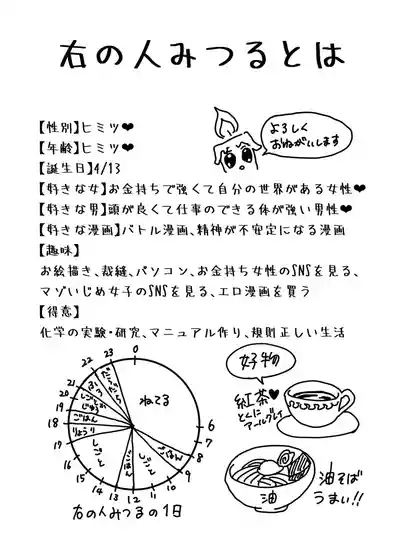 右の人みつるとは
【性別】ヒミツ❤
【年齢】ヒミツ❤
【誕生日】4/13
【好きな女】お金持ちで強くて自分の世界がある女性❤
【好きな男】頭が良くて仕事のできる体が強い男性❤
【好きな漫画】バトル漫画、精神が不安定になる漫画
【趣味】
お絵描き、裁縫、パソコン、お金持ち女性のSNSを見る、
マゾいじめ女子のSNSを見る、エロ漫画を買う
【得意】
化学の実験・研究、マニュアル作り、規則正しい生活
よろしく
おねがいします
0
6
7
8
9
10
11
12
13
14
15
16
17
18
19
20
21
22
23
ねてる
ごはん
しごと
ごはん
しごと
りょうり
ごはん
じゅんび
ふろ
だらだら
右の人みつるの1日
好物
紅茶❤
とくに
アールグレイ
油
油そば
うまい!!